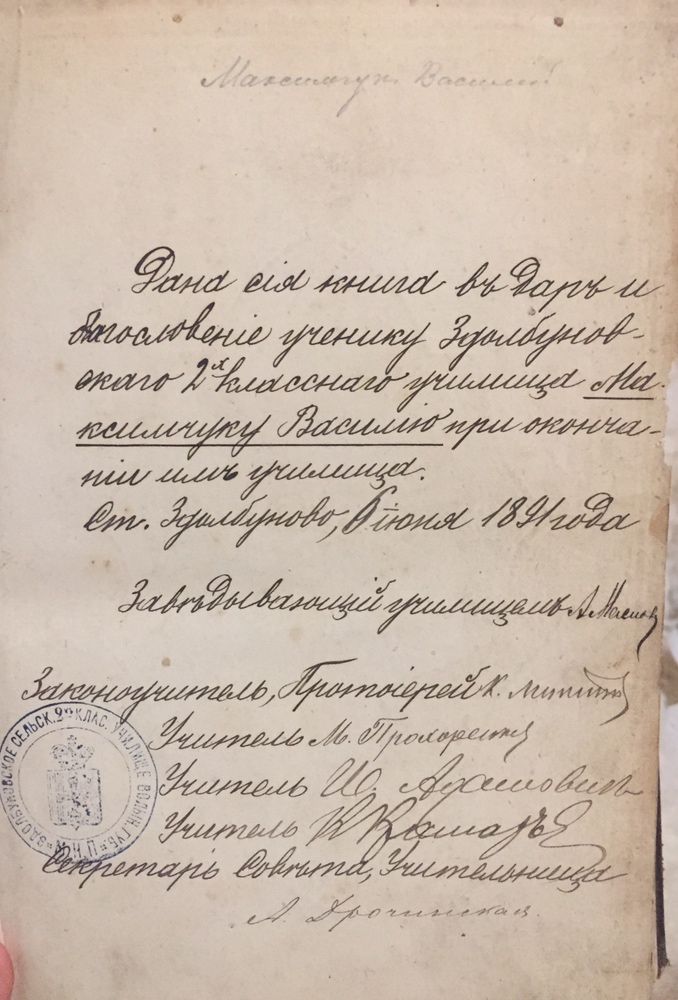 Максимчукъ Василій
Дана сія книга въ даръ и
благословеніе ученику Здолбунов-
скаго 2х класснаго училища Ма-
ксимчуку Василію при оконча-
ніи имъ училища.
Ст. Здолбуново, 6 іюня 1891 года
Завѣдывающій училищемъ А.
Законоучитель, Протоіерей К.
Учитель М. Прохоренко
Учитель И.
Учитель К Комаръ
Секретарь Совѣта, Учительница
А. Дрочинская.
ЗДОЛБУНОВСКОЕ СЕЛЬСК. 2х КЛАС. УЧИЛИЩЕ ВОЛЫН. ГУБ.